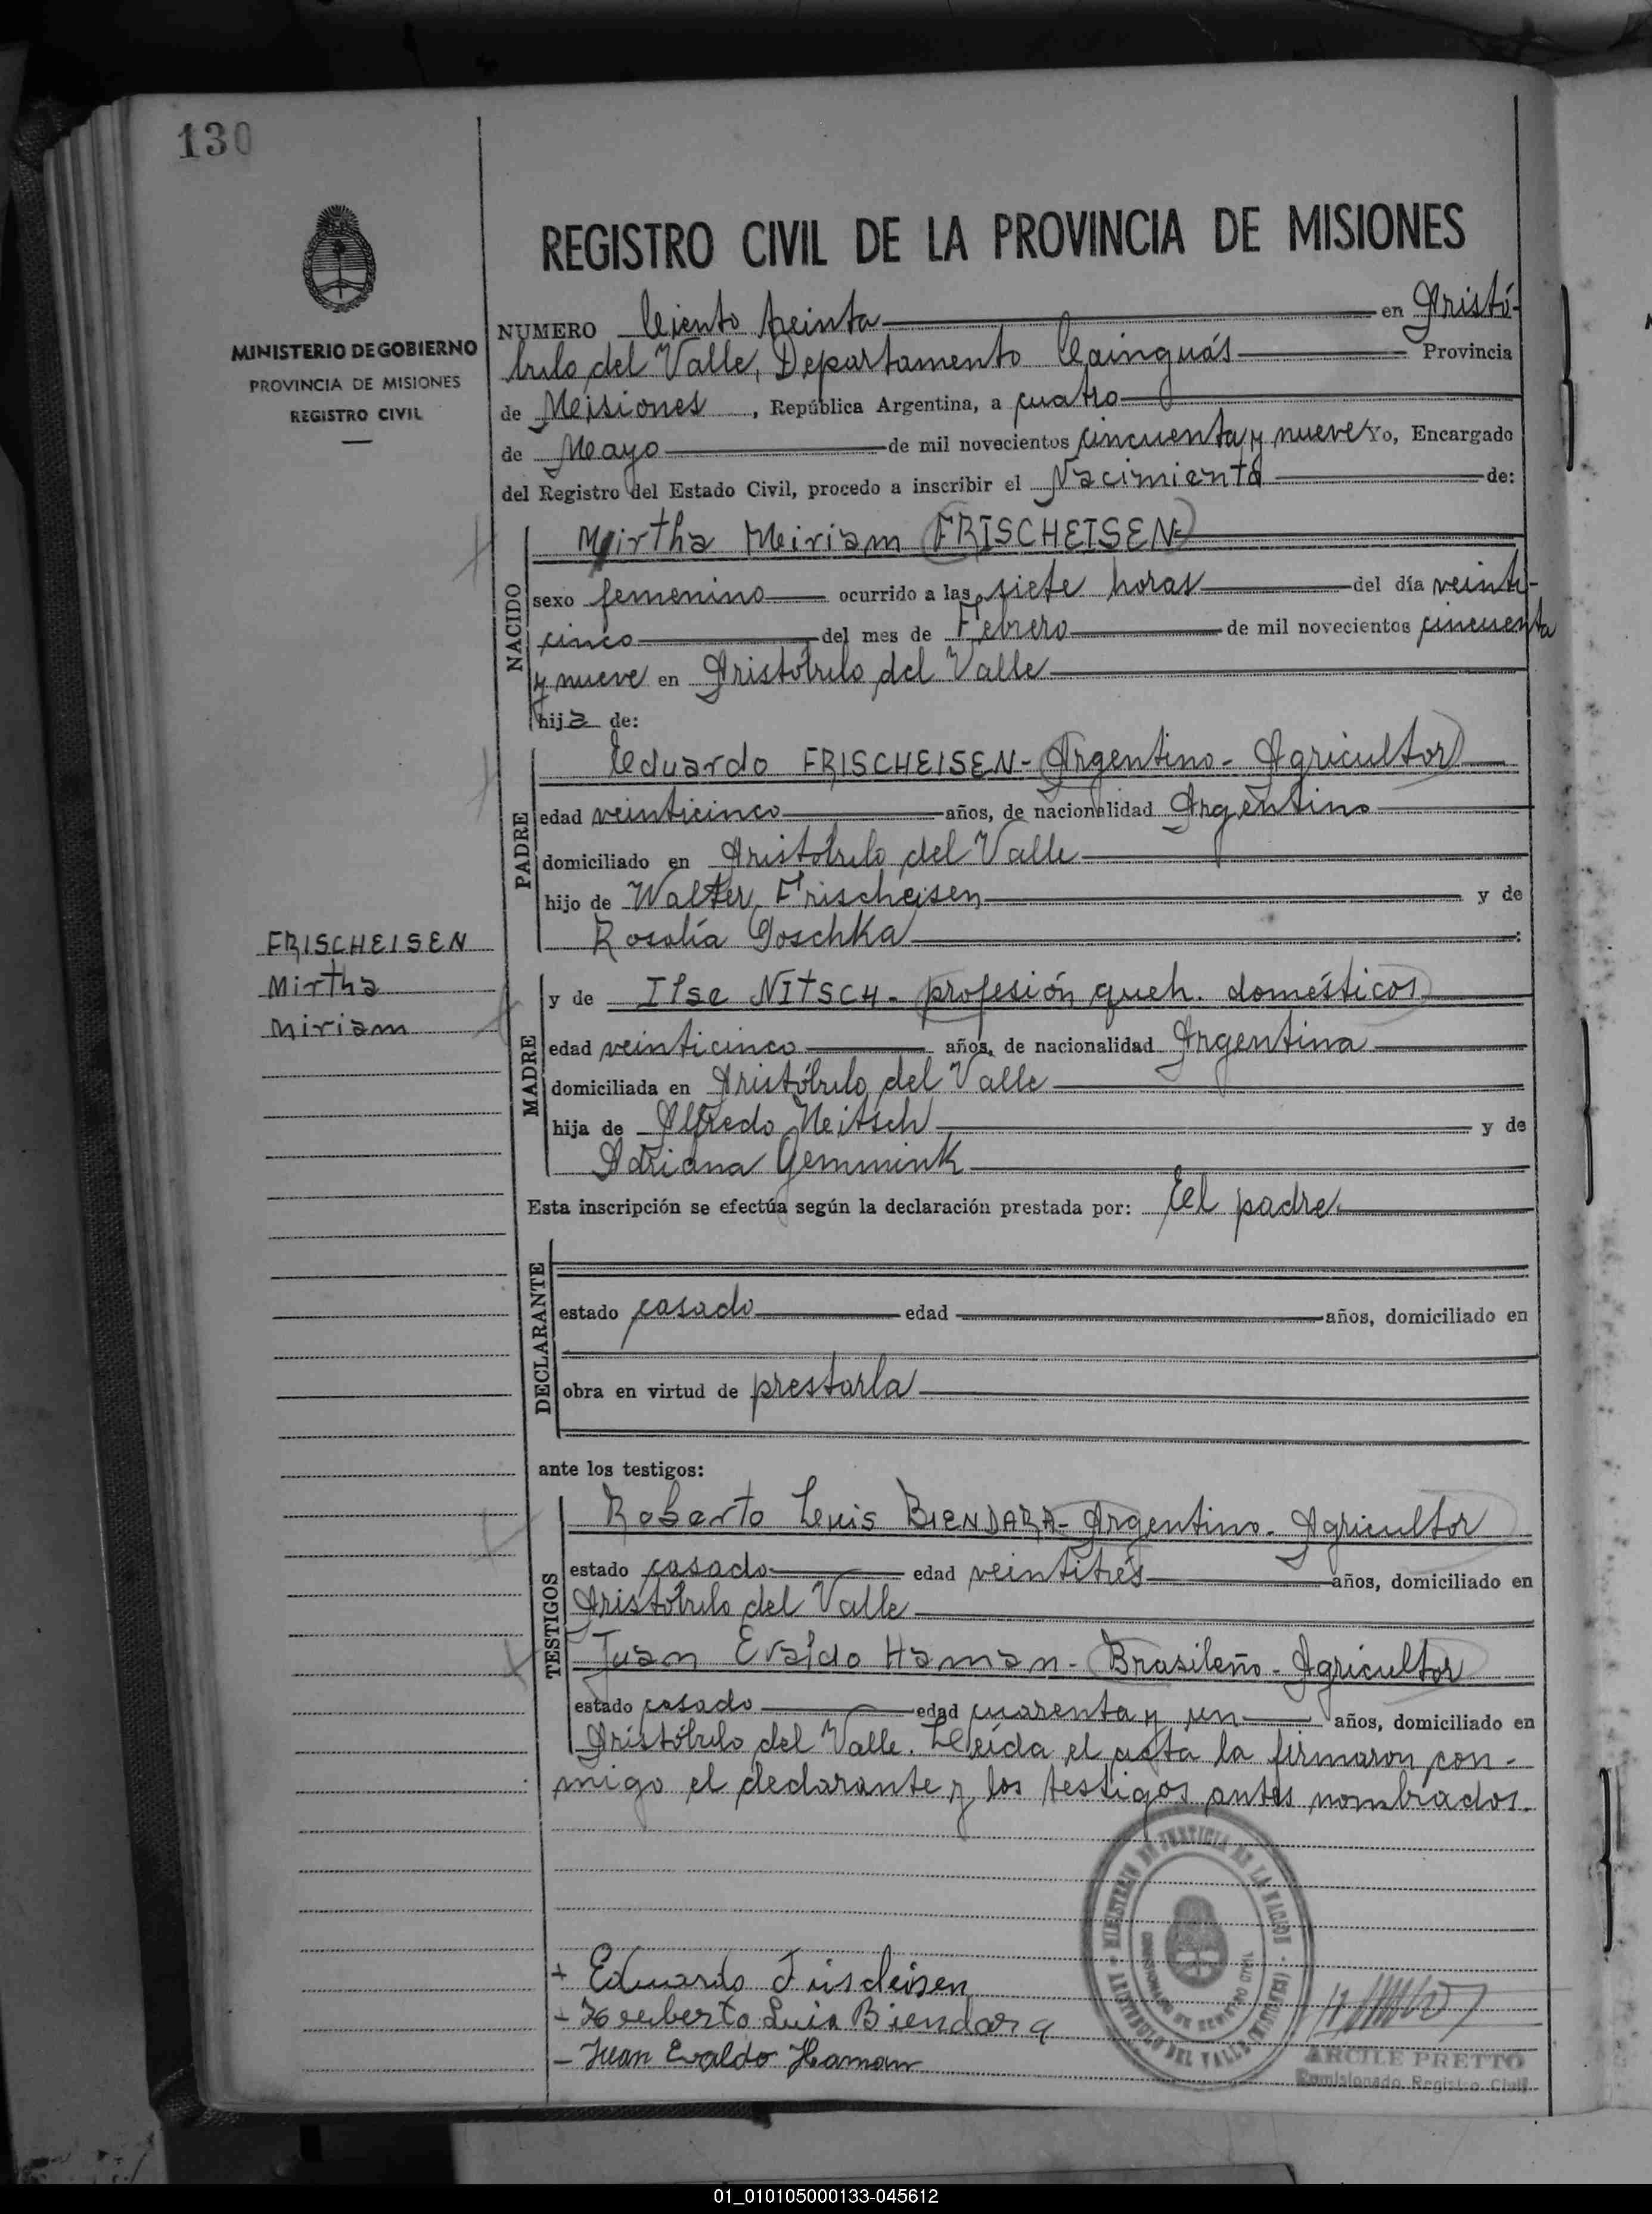 130
REGISTRO CIVIL DE LA PROVINCIA DE MISIONES
MINISTERIO DE GOBIERNO
PROVINCIA DE MISIONES
REGISTRO CIVIL
NUMERO Ciento treinta en Aristó-
bulo del Valle, Departamento Cainguás Provincia
de Misiones, República Argentina, a cuatro
de Mayo de mil novecientos cincuenta y nueve Yo, Encargado
del Registro del Estado Civil, procedo a inscribir el Nacimiento de:
NACIDO
Mirtha Miriam FRISCHEISEN
sexo femenino ocurrido a las siete horas del día veinti-
cinco del mes de Febrero de mil novecientos cincuenta
y nueve en Aristóbulo del Valle
hija de:
PADRE
Eduardo FRISCHEISEN - Argentino - Agricultor
edad veinticinco años, de nacionalidad Argentino
domiciliado en Aristóbulo del Valle
hijo de Walter Frischeisen y de
Rosalía Goschka
FRISCHEISEN
Mirtha
Miriam
MADRE
y de Ilse NITSCH - profesión queh. domésticos
edad veinticinco años, de nacionalidad Argentina
domiciliada en Aristóbulo del Valle
hija de Alfredo Nitsch y de
Adriana Gemmink
Esta inscripción se efectúa según la declaración prestada por: El padre
DECLARANTE
estado casado edad años, domiciliado en
obra en virtud de prestarla
ante los testigos:
TESTIGOS
Roberto Luis BIENDARA - Argentino - Agricultor
estado casado edad veintitrés años, domiciliado en
Aristóbulo del Valle
Juan Evaldo Haman - Brasileño - Agricultor
estado casado edad cuarenta y un años, domiciliado en
Aristóbulo del Valle. Leída el acta la firmaron con-
migo el declarante y los testigos antes nombrados.
MINISTERIO DE JUSTICIA DE LA NACION
ARISTOBULO DEL VALLE (MISIONES)
Eduardo Frischeisen
Luis Biendara
Juan Evaldo Haman
ARCILE PRETTO
Comisionado Registro Civil
01_010105000133-045612